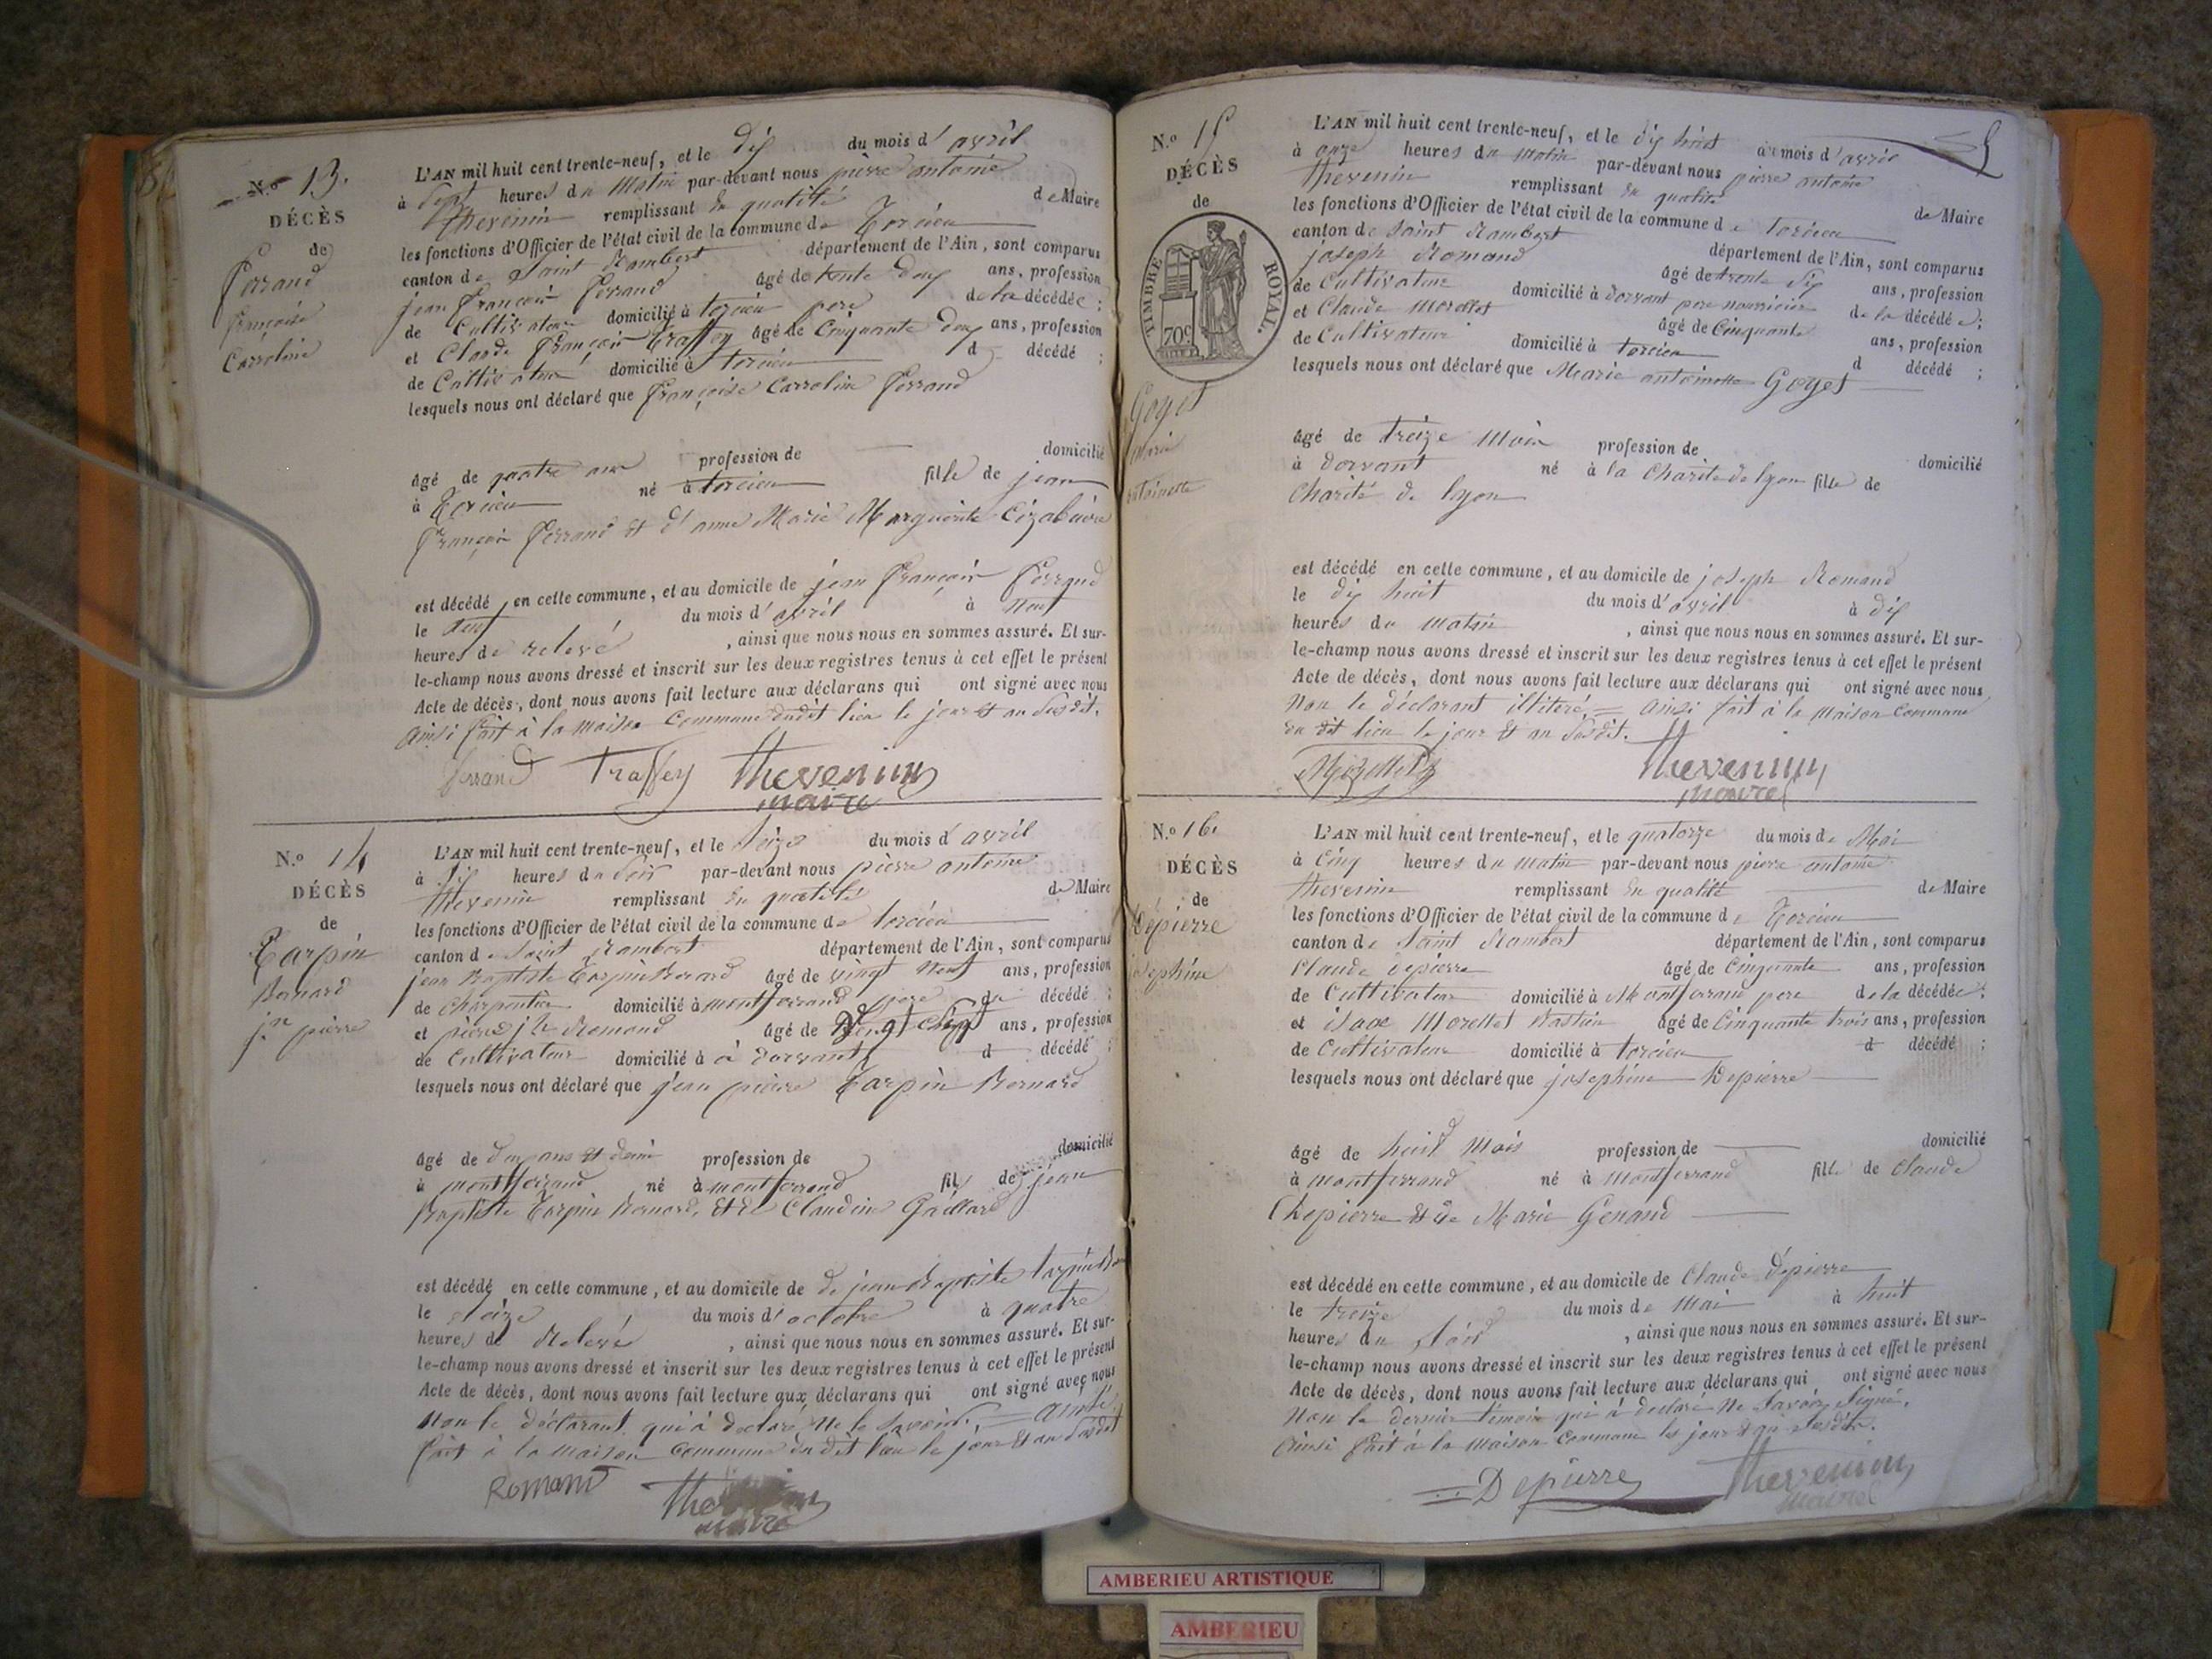 N.o 13.
DÉCÈS
de
Ferrand
françoise
Carroline
L'AN mil huit cent trente-neuf, et le dix du mois d'avril
à sept heures du Matin par-devant nous pierre antoine
Thevenin remplissant en qualité de Maire
les fonctions d'Officier de l'état civil de la commune de Torcieu
canton de Saint Rambert département de l'Ain, sont comparus
jean François Ferrand âgé de trente deux ans, profession
de Cultivateur domicilié à torcieu pere de la décédée ;
et Claude François Traffey âgé de Cinquante deux ans, profession
de Cultivateur domicilié à torcieu d décédé ;
lesquels nous ont déclaré que françoise Carroline Ferrand
âgé de quatre ans profession de domicilié
à Torcieu né à torcieu fille de jean
François Ferrand et d'anne Marie Marguerite
est décédé en cette commune, et au domicile de jean François Ferrand
le neuf du mois d'avril à neuf
heures de relevé , ainsi que nous nous en sommes assuré. Et sur-
le-champ nous avons dressé et inscrit sur les deux registres tenus à cet effet le présent
Acte de décès, dont nous avons fait lecture aux déclarans qui ont signé avec nous
ainsi fait à la maison Commune dudit lieu le jour et an susdit.
ferrand Traffey Thevenin
maire
N.o 14
DÉCÈS
de
Tarpin
Bernard
jn pierre
L'AN mil huit cent trente-neuf, et le seize du mois d'avril
à six heures du soir par-devant nous pierre antoine
thevenin remplissant en qualité de Maire
les fonctions d'Officier de l'état civil de la commune de torcieu
canton de Saint Rambert département de l'Ain, sont comparus
jean Baptiste Tarpin Bernard âgé de vingt neuf ans, profession
de Charpentier domicilié à montferrand pere du décédé ;
et pierre jh Romand âgé de ans, profession
de Cultivateur domicilié à à dorvant d décédé ;
lesquels nous ont déclaré que jean pierre Tarpin Bernard
âgé de deux ans et demi profession de domicilié
à montferrand né à montferrand fils de jean
Baptiste Tarpin Bernard, et de Claudine Gaillard
est décédé en cette commune, et au domicile de de jean Baptiste tarpin
le seize du mois d'octobre à quatre
heures de Relevé , ainsi que nous nous en sommes assuré. Et sur-
le-champ nous avons dressé et inscrit sur les deux registres tenus à cet effet le présent
Acte de décès, dont nous avons fait lecture aux déclarans qui ont signé avec nous
Non le déclarant qui à declaré Ne le savoir. = ainsi
fait à la maison Commune du dit lieu le jour et an susdit
Romand Thevenin
maire
N.o 15
DÉCÈS
de
TIMBRE ROYAL.
70c.
Goyet
Marie
antoinette
L'AN mil huit cent trente-neuf, et le dix huit du mois d'avril
à onze heures du matin par-devant nous pierre antoine
thevenin remplissant en qualité de Maire
les fonctions d'Officier de l'état civil de la commune de torcieu
canton de Saint Rambert département de l'Ain, sont comparus
joseph Romand âgé de trente six ans, profession
de Cultivateur domicilié à dorvant pere nourricier de la décédée ;
et Claude Morellet âgé de Cinquante ans, profession
de Cultivateur domicilié à torcieu d décédé ;
lesquels nous ont déclaré que Marie antoinette Goyet
âgé de treize mois profession de domicilié
à dorvant né à la Charité de lyon fille de
Charité de lyon
est décédé en cette commune, et au domicile de joseph Romand
le dix huit du mois d'avril à dix
heures du matin , ainsi que nous nous en sommes assuré. Et sur-
le-champ nous avons dressé et inscrit sur les deux registres tenus à cet effet le présent
Acte de décès, dont nous avons fait lecture aux déclarans qui ont signé avec nous
Non le déclarant illiteré = ainsi fait à la maison Commune
du dit lieu le jour et an susdit.
Morellet Thevenin
maire
N.o 16.
DÉCÈS
de
Depierre
josephine
L'AN mil huit cent trente-neuf, et le quatorze du mois de Mai
à Cinq heures du matin par-devant nous pierre antoine
thevenin remplissant en qualité de Maire
les fonctions d'Officier de l'état civil de la commune de Torcieu
canton de Saint Rambert département de l'Ain, sont comparus
Claude Depierre âgé de Cinquante ans, profession
de Cultivateur domicilié à Montferrand pere de la décédée ;
et isaac Morellet Bastien âgé de Cinquante trois ans, profession
de Cultivateur domicilié à torcieu d décédé ;
lesquels nous ont déclaré que josephine Depierre
âgé de huit Mois profession de domicilié
à montferrand né à montferrand fille de Claude
Depierre et de Marie Genand
est décédé en cette commune, et au domicile de Claude Depierre
le treize du mois de Mai à huit
heures du soir , ainsi que nous nous en sommes assuré. Et sur-
le-champ nous avons dressé et inscrit sur les deux registres tenus à cet effet le présent
Acte de décès, dont nous avons fait lecture aux déclarans qui ont signé avec nous
Non le dernier témoin qui à declaré Ne savoir signé.
ainsi fait à la maison Commune les jour et an susdits.
Depierre Thevenin
maire
AMBERIEU ARTISTIQUE
AMBERIEU